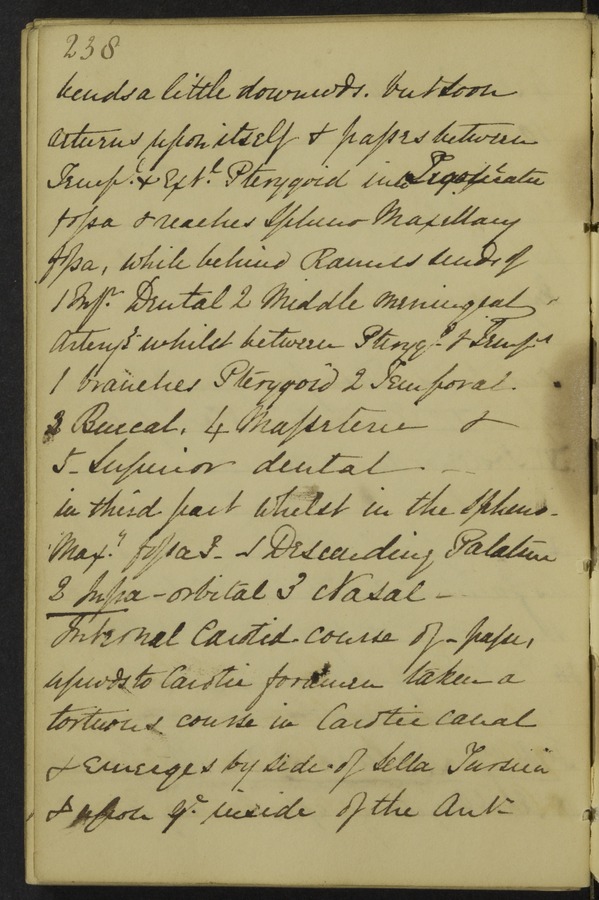 238
bends a little downwds. but soon
returns upon itself & passes between
Temp.l & Ext.l Pterygoid into Zygomatic
fossa & reaches Spheno Maxillary
fossa, while behind Ramus sends off
1 Inf.r Dental 2 Middle meningeal
Artery whilst between Pteryg.d & Temp.l
1 branches Pterygoid 2 Temporal.
3 Buccal. 4 Masseteric &
5 Superior dental
in third part whilst in the Spheno-
Max.y fossa 1 Descending Palatine
2 Infra-orbital 3 Nasal -
Internal Carotid course of - passes
upwds to Carotic foramen taken a
tortuous course in Carotic canal
& emerges by side of Sella Tursica
& upon inside of the Ant.